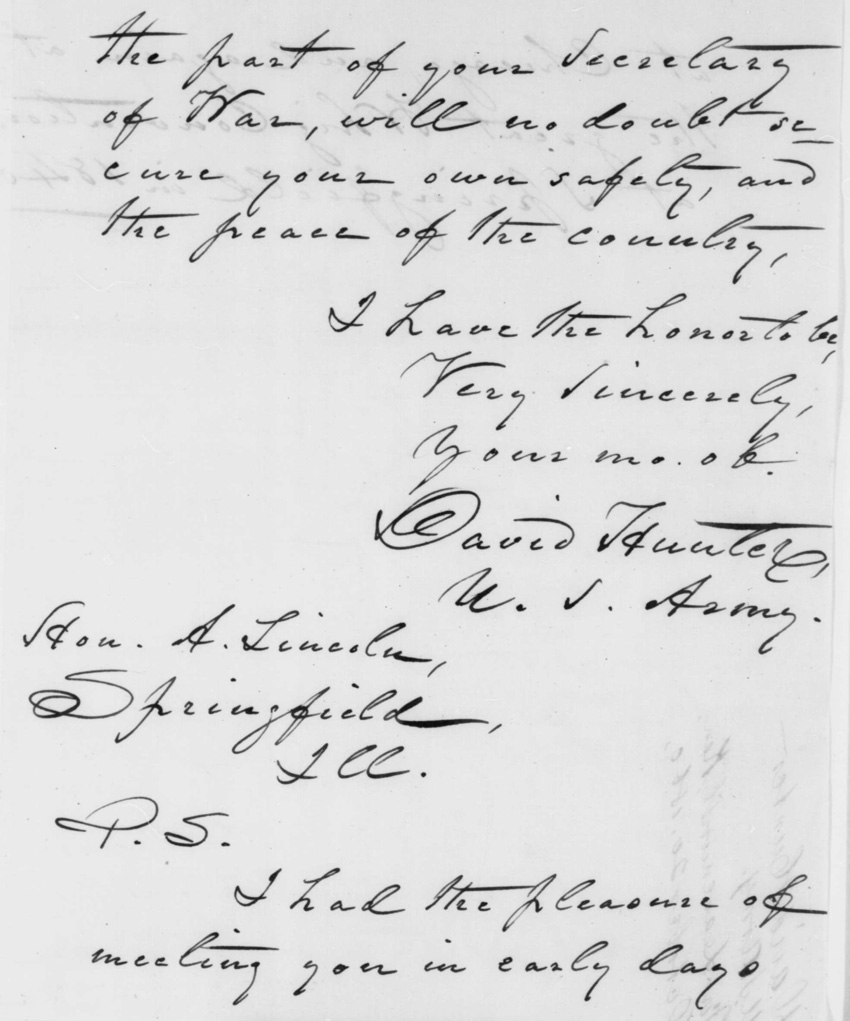 the part of your Secretary
of War, will no doubt se-
cure your own safety, and
the peace of the country,
I have the honor to be,
Very Sincerely,
Your mo. ob.
David Hunter,
U. S. Army.
Hon. A. Lincoln,
Springfield,
Ill.
P. S.
I had the pleasure of
meeting you in early days